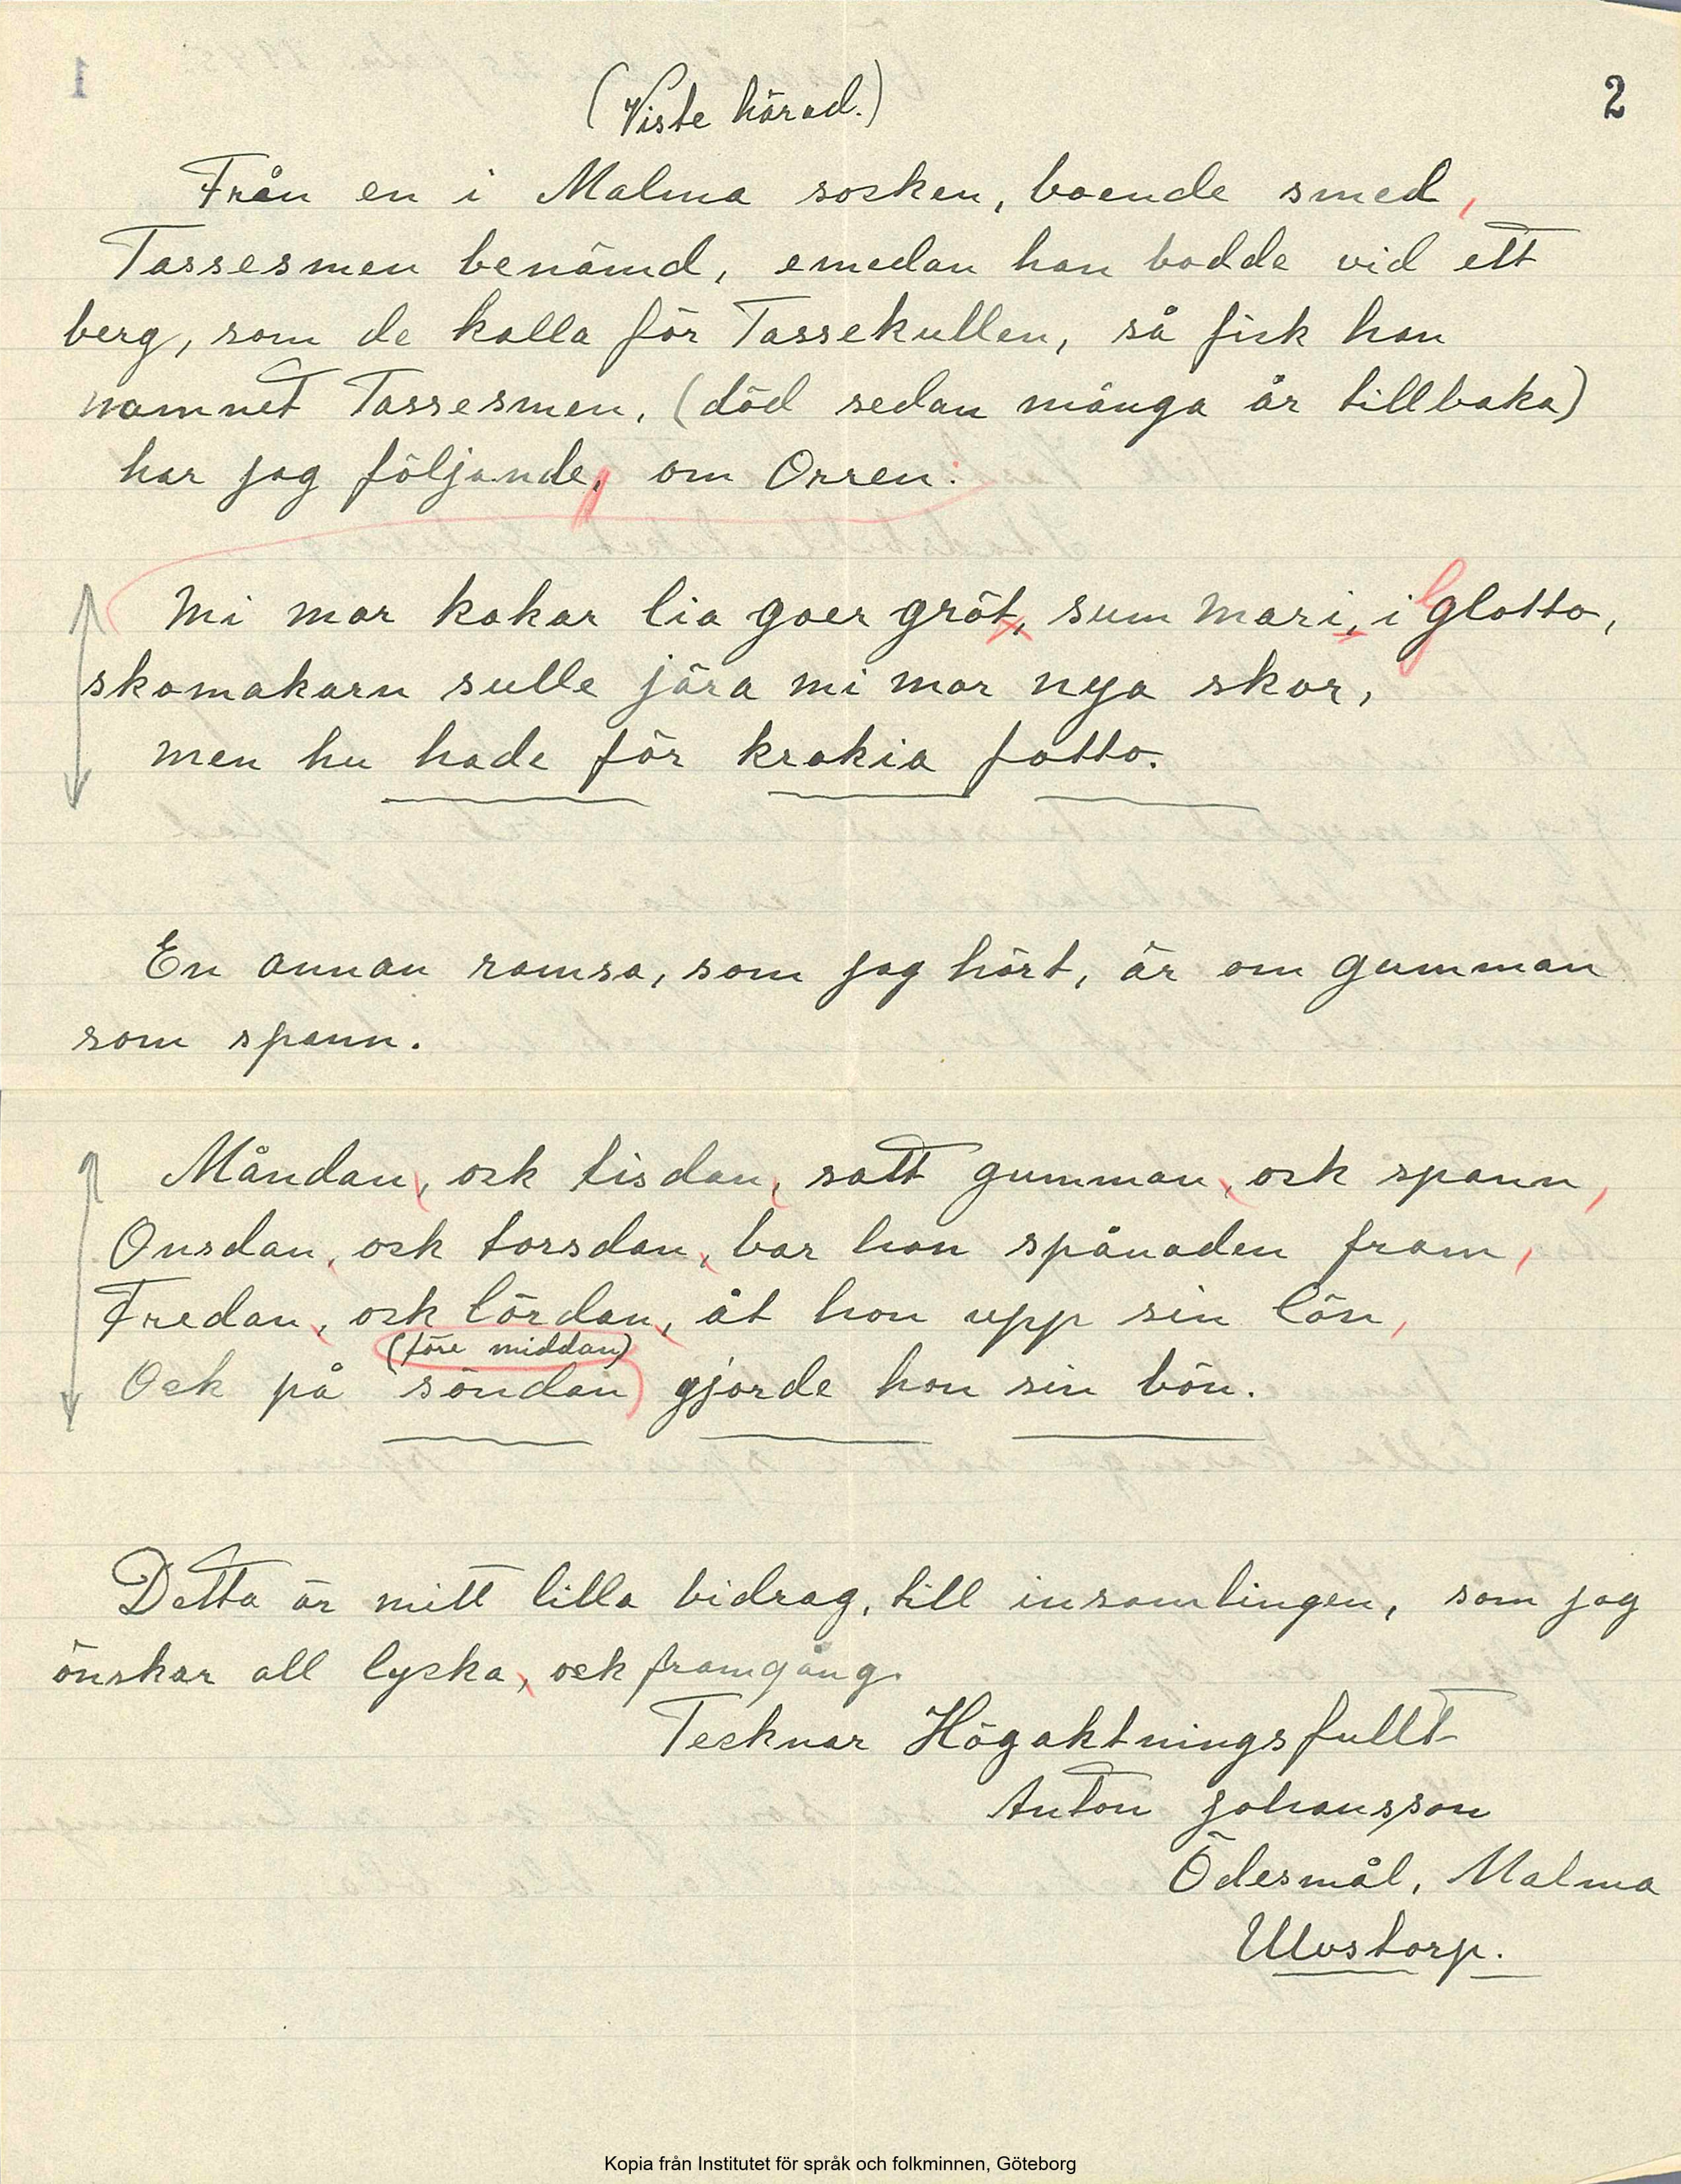 1
2
(Viste härad.)
Från en i Malma socken, boende smed,
Tassesmen benämd, emedan han bodde vid ett
berg, som de kalla för Tassekullen, så fick han
namnet Tassesmen, (död sedan många år tillbaka)
har jag följande, om Orren:
Mi mor kokar lia goer gröt, sum Mari, i glotto,
skomakarn sulle jära mi mor nya skor,
men hu hade för krokia fotto.
En annan ramsa, som jag hört, är om gumman
som spann.
Måndan, ock tisdan, satt gumman, ock spann,
Onsdan, ock torsdan, bar hon spånaden fram,
Fredan, ock lördan, åt hon upp sin lön,
(före middan)
Ock på söndan gjorde hon sin bön.
Detta är mitt lilla bidrag, till insamlingen, som jag
önskar all lycka, ock framgång.
Tecknar Högaktningsfullt
Anton Johansson
Ödesmål, Malma
Ulvstorp.
Kopia från Institutet för språk och folkminnen, Göteborg